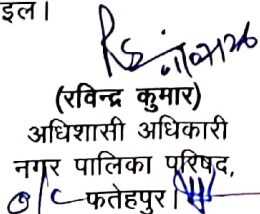 इल।
(रविन्द्र कुमार)
अधिशासी अधिकारी
नगर पालिका परिषद,
O/C फतेहपुर।